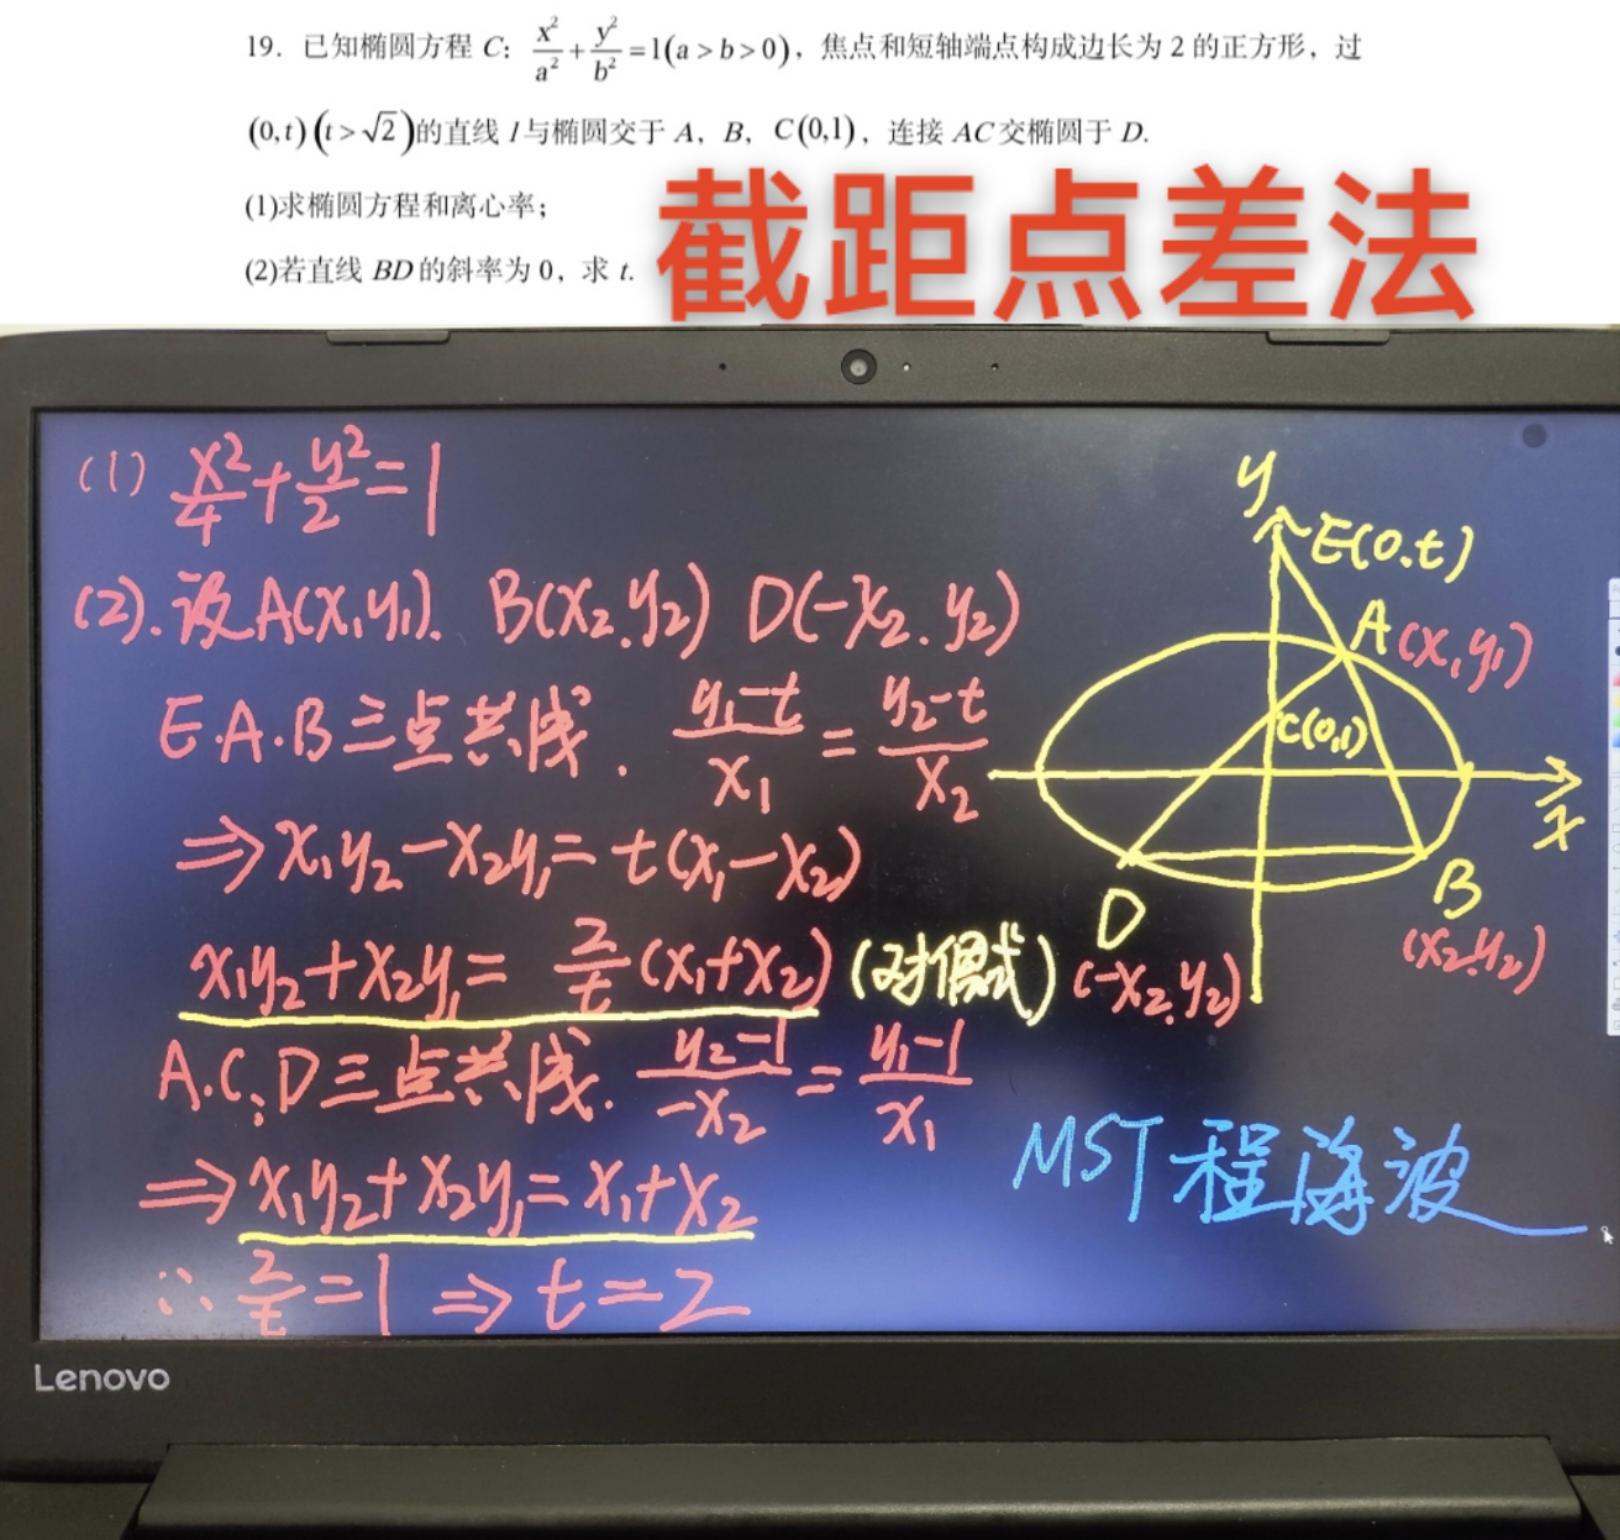 19. 已知椭圆方程 C: x²/a² + y²/b² = 1(a > b > 0), 焦点和短轴端点构成边长为 2 的正方形, 过
(0,t)(t > √2)的直线 l 与椭圆交于 A, B, C(0,1), 连接 AC 交椭圆于 D.
(1)求椭圆方程和离心率;
(2)若直线 BD 的斜率为 0, 求 t.
截距点差法
(1) x²/4 + y²/2 = 1
(2). 设A(x₁y₁). B(x₂.y₂) D(-x₂.y₂)
E.A.B三点共线. (y₁-t)/x₁ = (y₂-t)/x₂
⇒ x₁y₂-x₂y₁ = t(x₁-x₂)
x₁y₂+x₂y₁ = 2/t (x₁+x₂) (对偶式)
A.C.D三点共线. (y₂-1)/-x₂ = (y₁-1)/x₁
⇒ x₁y₂+x₂y₁ = x₁+x₂
∴ 2/t = 1 ⇒ t = 2
y
E(0.t)
A(x₁y₁)
C(0,1)
x
D
(-x₂.y₂)
B
(x₂.y₂)
MST 程海波
Lenovo